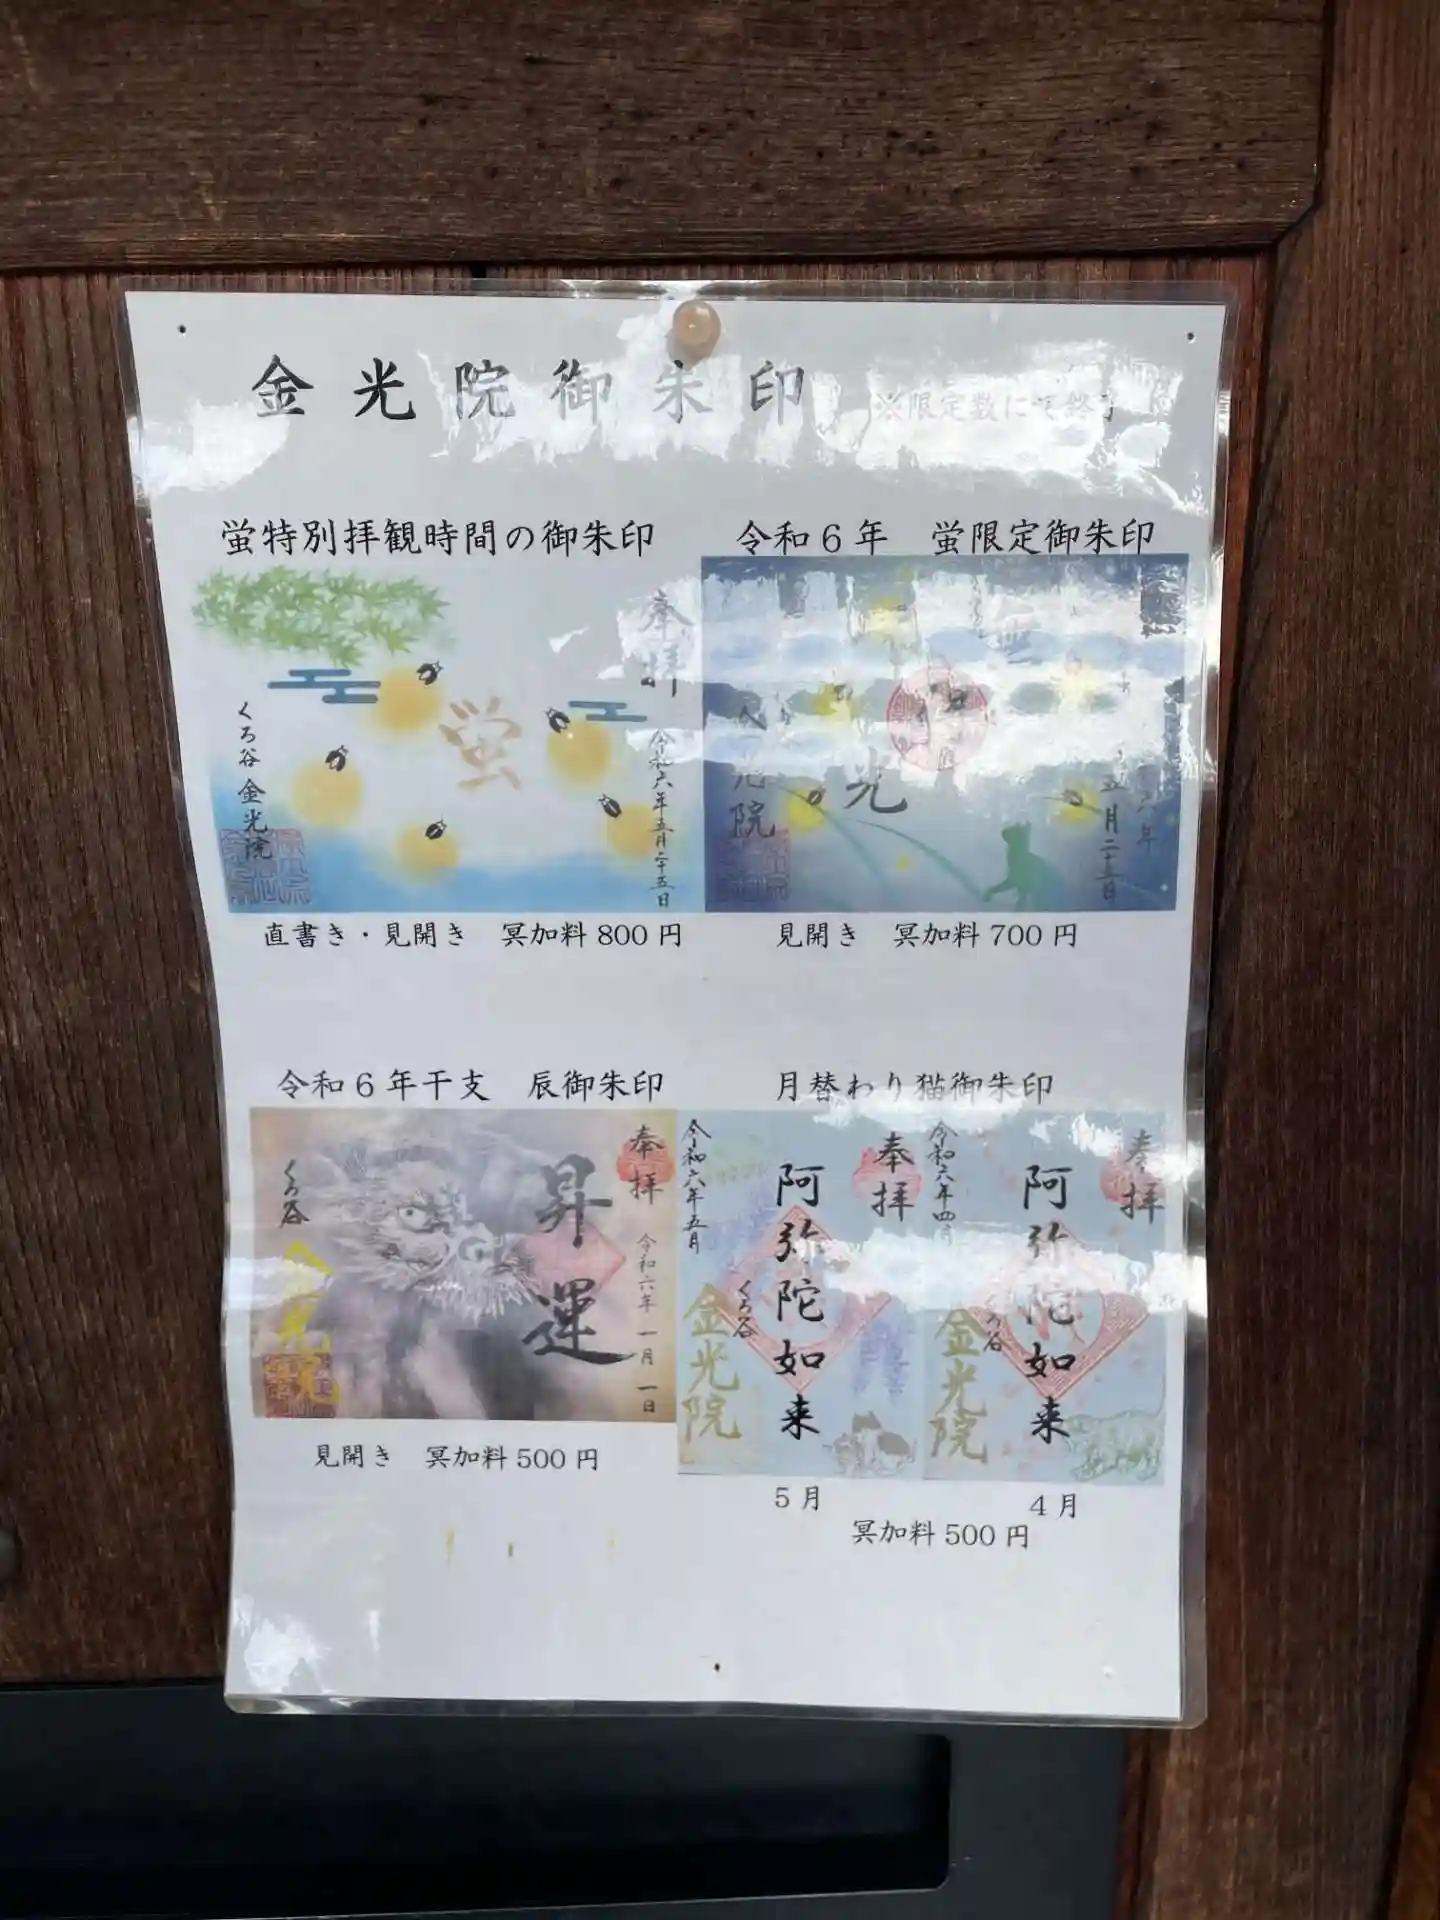 金光院御朱印 ※限定数にて終了
蛍特別拝観時間の御朱印
奉拝
令和六年五月二十五日
蛍
くろ谷 金光院
直書き・見開き 冥加料 800 円
令和6年 蛍限定御朱印
五月二十五日
光
院
見開き 冥加料 700 円
令和6年干支 辰御朱印
奉拝
令和六年 一月 一日
昇運
くろ谷
金光
見開き 冥加料 500 円
月替わり猫御朱印
奉拝
阿弥陀如来
令和六年五月
くろ谷
金光院
5月
奉拝
阿弥陀如来
令和六年四月
くろ谷
金光院
4月
冥加料 500 円